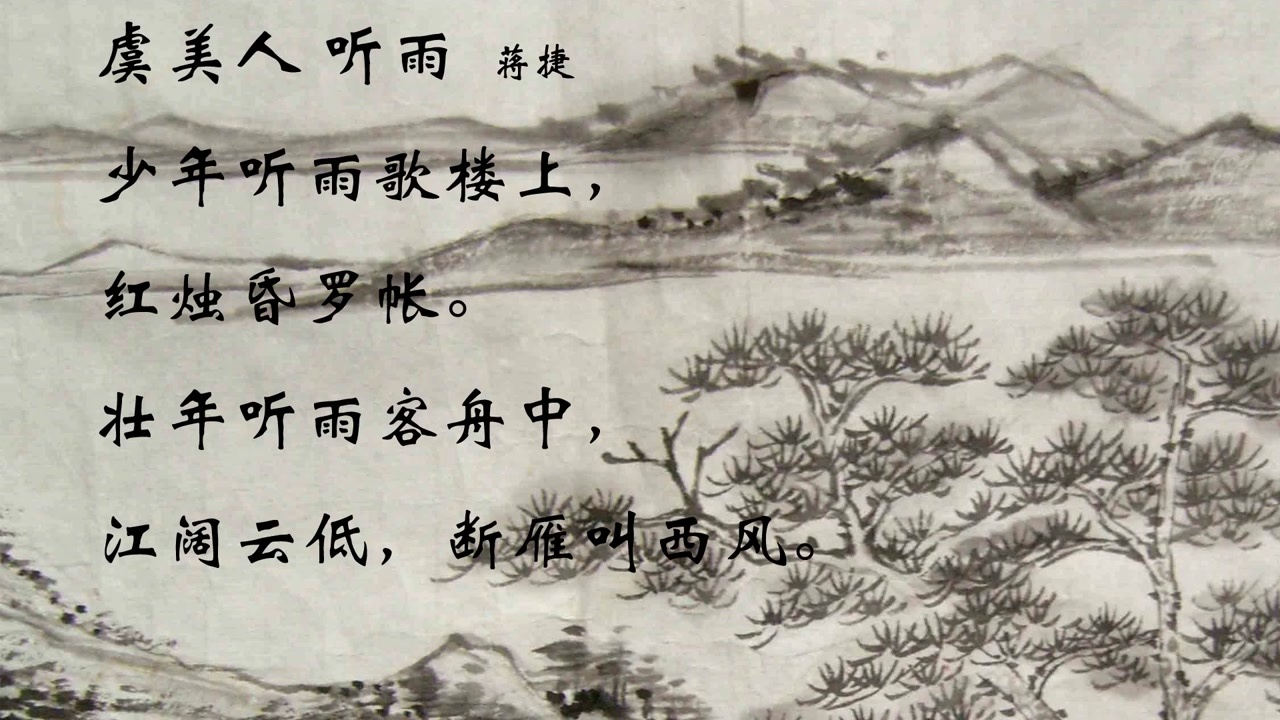 虞美人 听雨 蒋捷
少年听雨歌楼上，
红烛昏罗帐。
壮年听雨客舟中，
江阔云低，断雁叫西风。